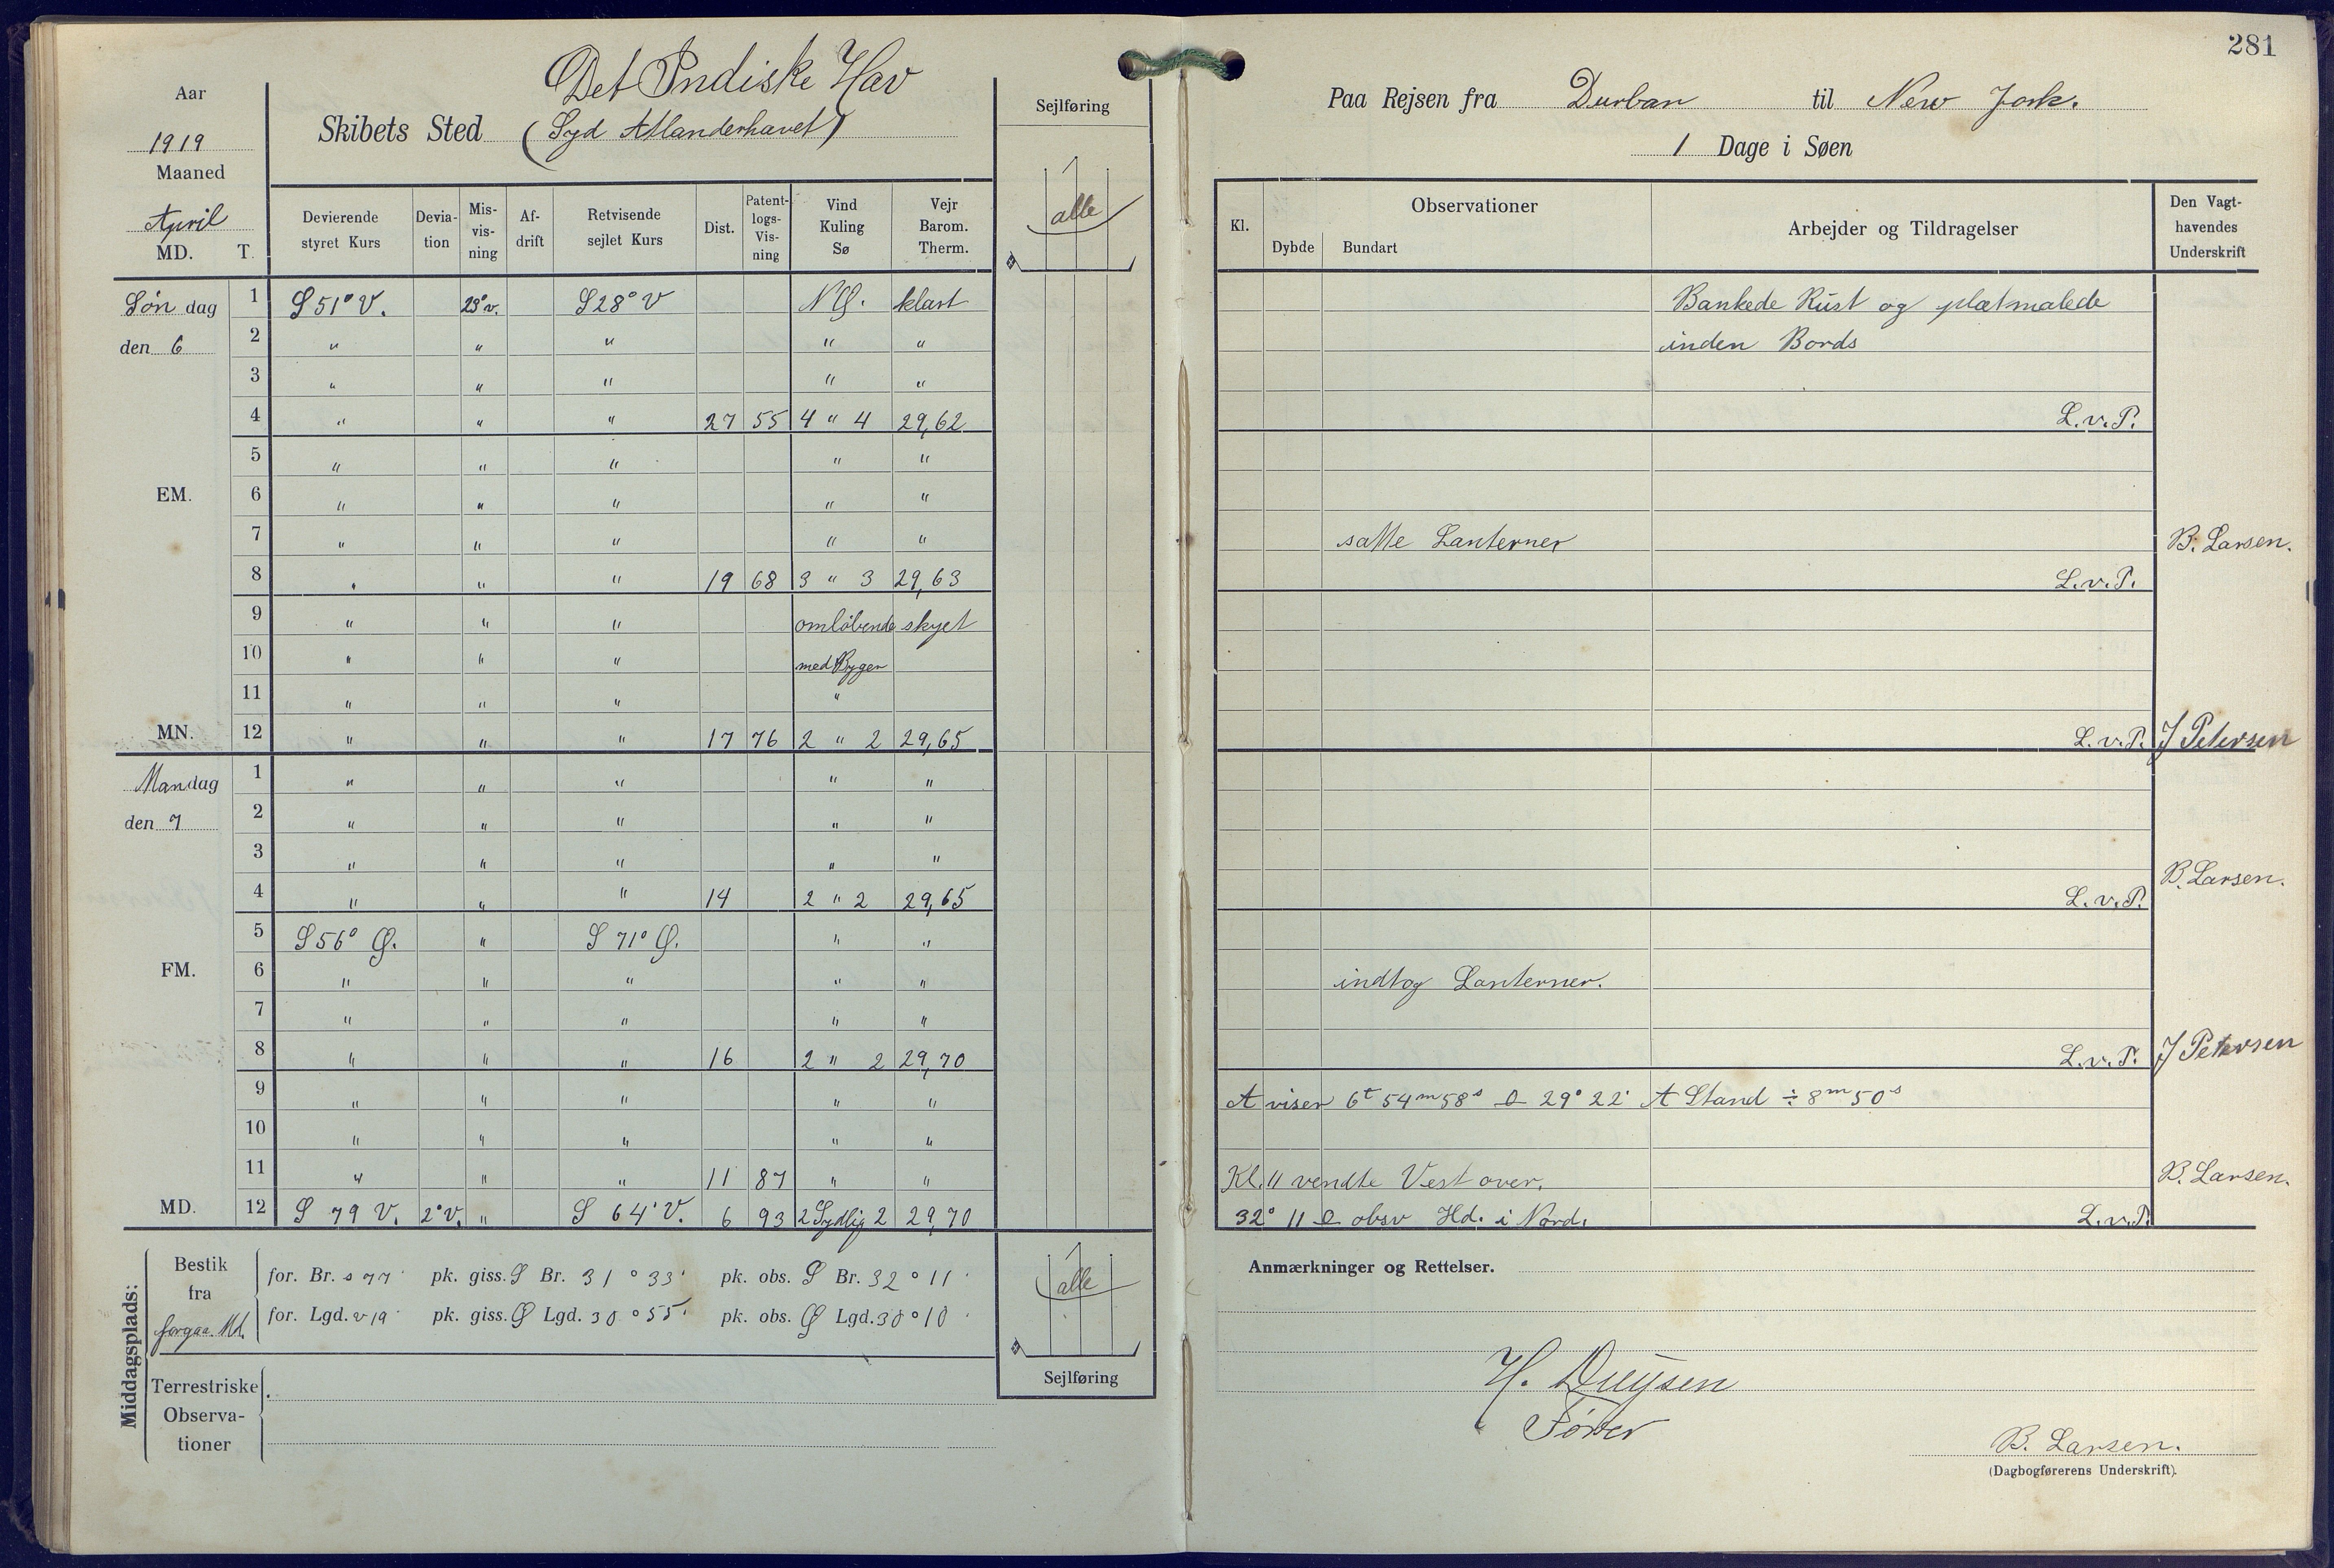 281
Det Indiske Hav
Aar
1919
Maaned
April
MD. T.
Skibets Sted (Syd Atlanderhavet)
Sejlføring
alle
Paa Rejsen fra Durban til New York.
1 Dage i Søen
Devierende styret Kurs | Devia-tion | Mis-vis-ning | Af-drift | Retvisende sejlet Kurs | Dist. | Patent-logs-Vis-ning | Vind Kuling Sø | Vejr Barom. Therm.
Kl. | Observationer | Dybde | Bundart | Arbejder og Tildragelser | Den Vagt-havendes Underskrift
Søndag 1 S 51° V. 23° v. S 28° V N Ø. klart Bankede Rust og pletmalede
den 6 2 " " " " " inden Bords
3 " " " " "
4 " " " 27 55 4 " 4 29,62 L.v.P.
5 " " " " "
EM. 6 " " " " "
7 " " " " " satte Lanterner B. Larsen.
8 " " " 19 68 3 " 3 29,63 L.v.P.
9 " " " omløbende skyet
10 " " " med Byger
11 " " " "
MN. 12 " " " 17 76 2 " 2 29,65 L.v.P. J Petersen
Mandag 1 " " " " "
den 7 2 " " " " "
3 " " " " "
4 " " " 14 2 " 2 29,65 L.v.P. B. Larsen.
5 S 56° Ø. " S 71° Ø. " "
FM. 6 " " " " " indtog Lanterner.
7 " " " " "
8 " " " 16 2 " 2 29,70 L.v.P. J Petersen
9 " " " " " A viser 6t 54m 58s 29° 22' A Stand ÷ 8m 50s
10 " " " " "
11 " " " 11 87 " " Kl. 11 vendte Vest over. B. Larsen.
MD. 12 S 79 V. 2° V. " S 64° V. 6 93 2 Sydlig 2 29,70 32° 11 obsv Hd. i Nord. L.v.P.
Middagsplads:
Bestik fra forgaa. Md.
for. Br. s 77' pk. giss. S Br. 31° 33' pk. obs. S Br. 32° 11'
for. Lgd. v 19' pk. giss. Ø Lgd. 30° 55' pk. obs. Ø Lgd. 30° 10'
alle
Sejlføring
Terrestriske
Observa-
tioner
Anmærkninger og Rettelser.
H. Duysen
Fører
B. Larsen.
(Dagbogførerens Underskrift).